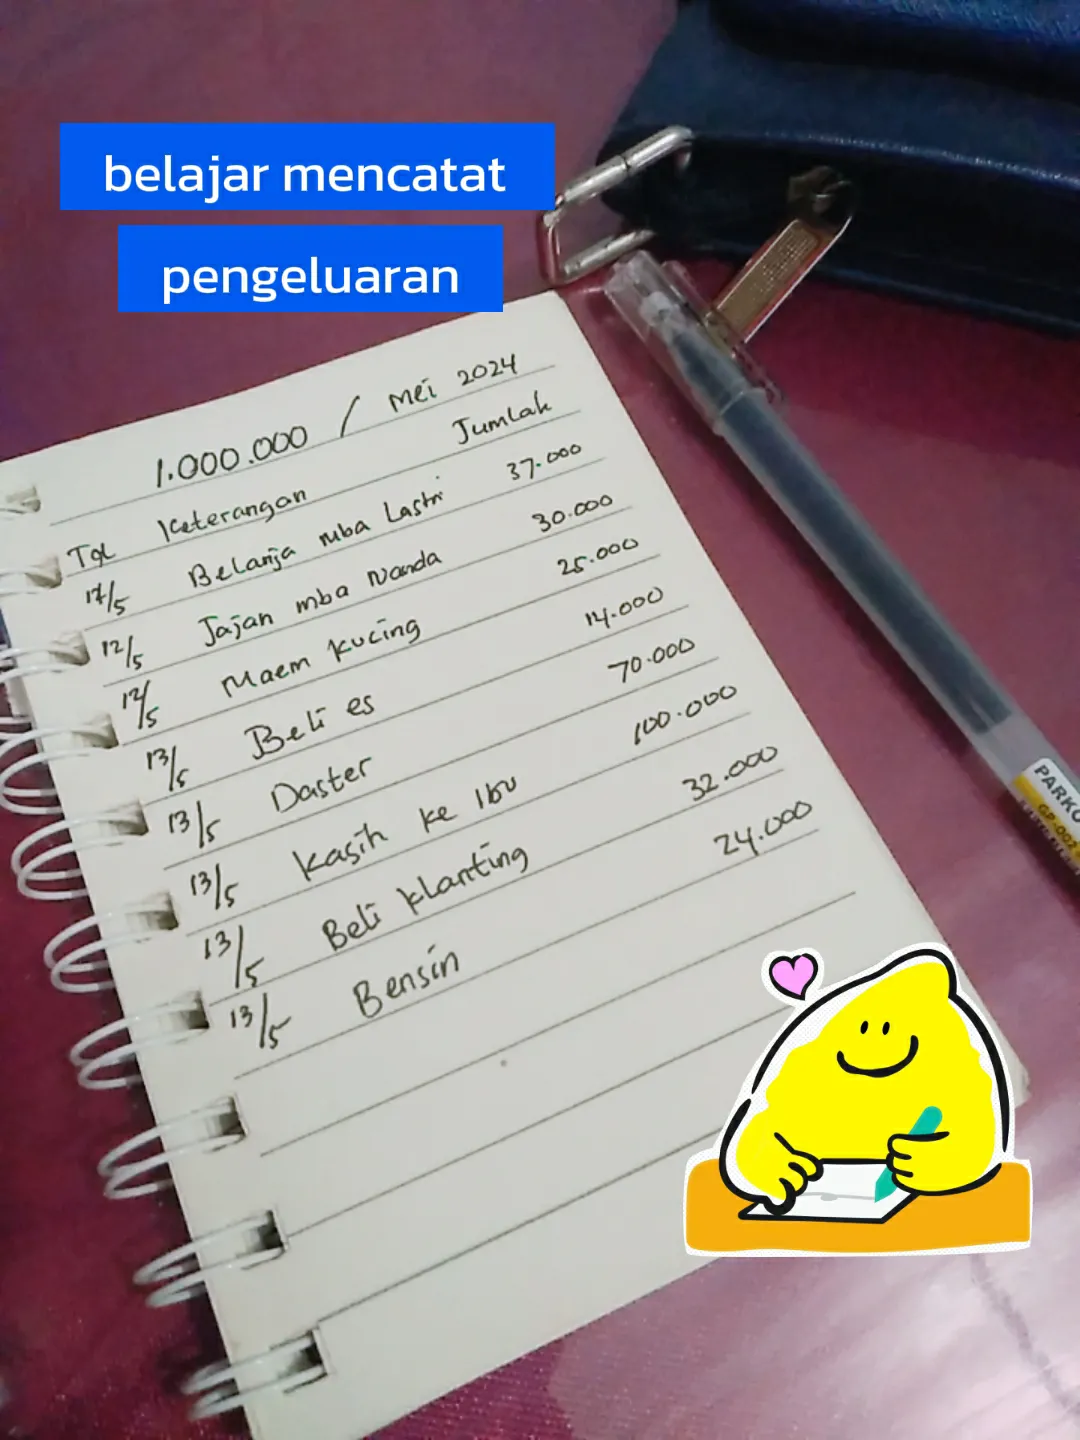 belajar mencatat
pengeluaran
1.000.000 / Mei 2024
Tgl Keterangan Jumlah
12/5 Belanja mba Lastri 37.000
12/5 Jajan mba Nanda 30.000
12/5 Maem kucing 25.000
13/5 Beli es 14.000
13/5 Daster 70.000
13/5 Kasih ke Ibu 100.000
13/5 Beli klanting 32.000
13/5 Bensin 24.000
PARKO
GP-002